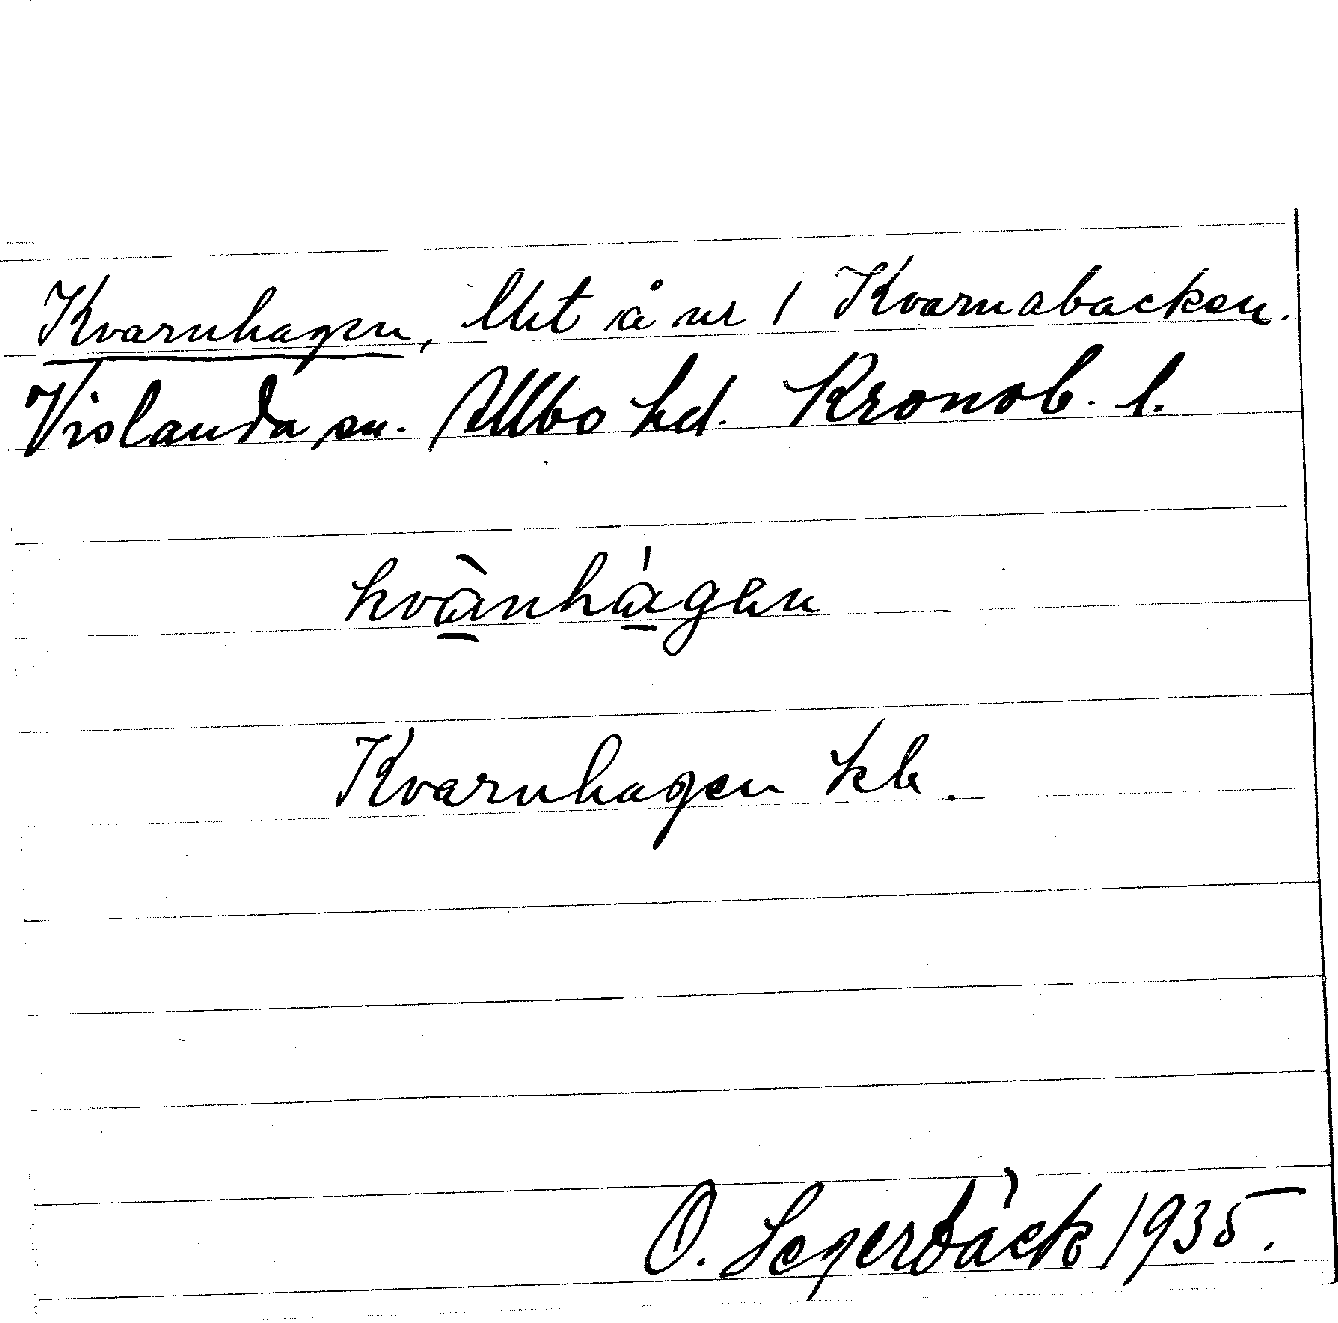 Kvarnhagen, lht å nr 1 Kvarnabacken.
Vislanda sn. Allbo hd. Kronob. l.
kvànhágen
Kvarnhagen kb.
O. Segerbäck 1935.